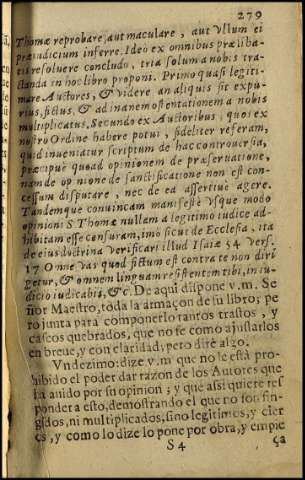 279
Thomæ reprobare, aut maculare, aut vllum ei
præiudicium inferre. Ideo ex omnibus præliba-
tis resoluere concludo, tria solum a nobis tra-
ctanda in hoc libro proponi. Primo quasi legiti-
mare Auctores, & videre an aliquis sit expu-
rius, fictus, & ad inanem ostentationem a nobis
multiplicatus. Secundo ex Auctoribus, quos ex
nostro Ordine habere potui, fideliter referam,
quid inueniatur scriptum de hac controuersia,
præcipuè quoad opinionem de præseruatione,
nam de opinione de sanctificatione non est con-
cessum disputare, nec de ea assertiuè agere.
Tandemque conuincam manifestè vsque modo
opinioni S. Thomæ nullam a legitimo iudice ad-
hibitam esse censuram, imò sicut de Ecclesia, ita
de eius doctrina verificari illud Isaiæ 54 vers.
17 Omne vas quod fictum est contra te non diri
getur, & omnem linguam resistentem tibi, in iu-
dicio iudicabis, &c. De aqui dispone v.m. Se
ñor Maestro, toda la armaçon de su libro; pe
ro junta para componerlo tantos trastos, y
cascos quebrados, que no se como ajustarlos
en breue, y con claridad; pero diré algo.
Vndezimo: dize v.m que no le està pro-
hibido el poder dar razon de los Autores que
ha auido por su opinion; y que assi quiere res
ponder a esto, demostrando el que no son fin-
gidos, ni multiplicados, sino legitimos, y cier
os, y como lo dize lo pone por obra, y empie
S 4
ça